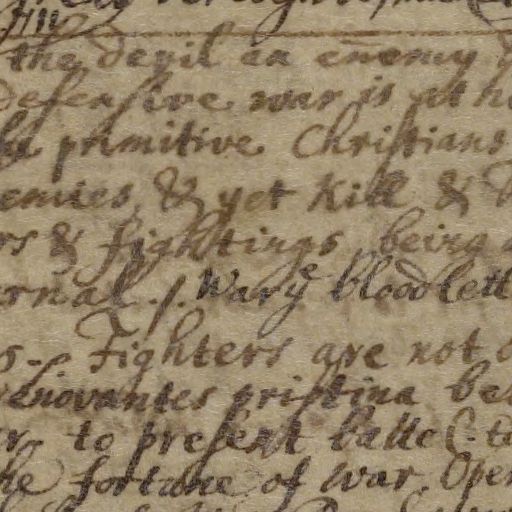 the devil an enemy
defensive war is at
primitive Christians
emies, & yet kill &
rs & fightings being
ernal. /. War yᵉ bloodlett
s. Fighters are not
enovantes pristina bel
r. to present battel. to
he fortune of war. Open